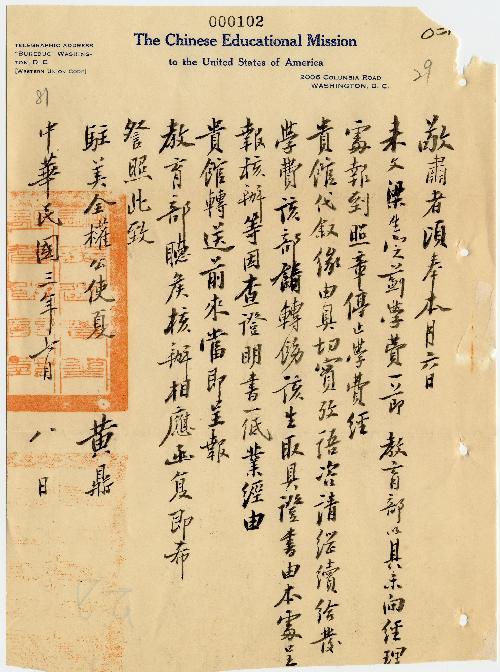 000102
TELEGRAPHIC ADDRESS
"BUREDUC" WASHING-
TON, D. C.
[WESTERN UNION CODE]
The Chinese Educational Mission
to the United States of America
2006 COLUMBIA ROAD
WASHINGTON, D. C.
29
81
敬肅者頃奉本月六日
來文梁生之薊學費一節 教育部以其未向經理
處報到照章停止學費經
貴館代敘緣由具切實考語咨請繼續給發
學費該部飭轉飭該生取具證書由本處呈
報核辦等因查證明書一紙業經由
貴館轉送前來當即呈報
教育部聽候核辦相應函復即希
詧照此致
駐美全權公使夏 黃鼎
中華民國三年 月 八 日